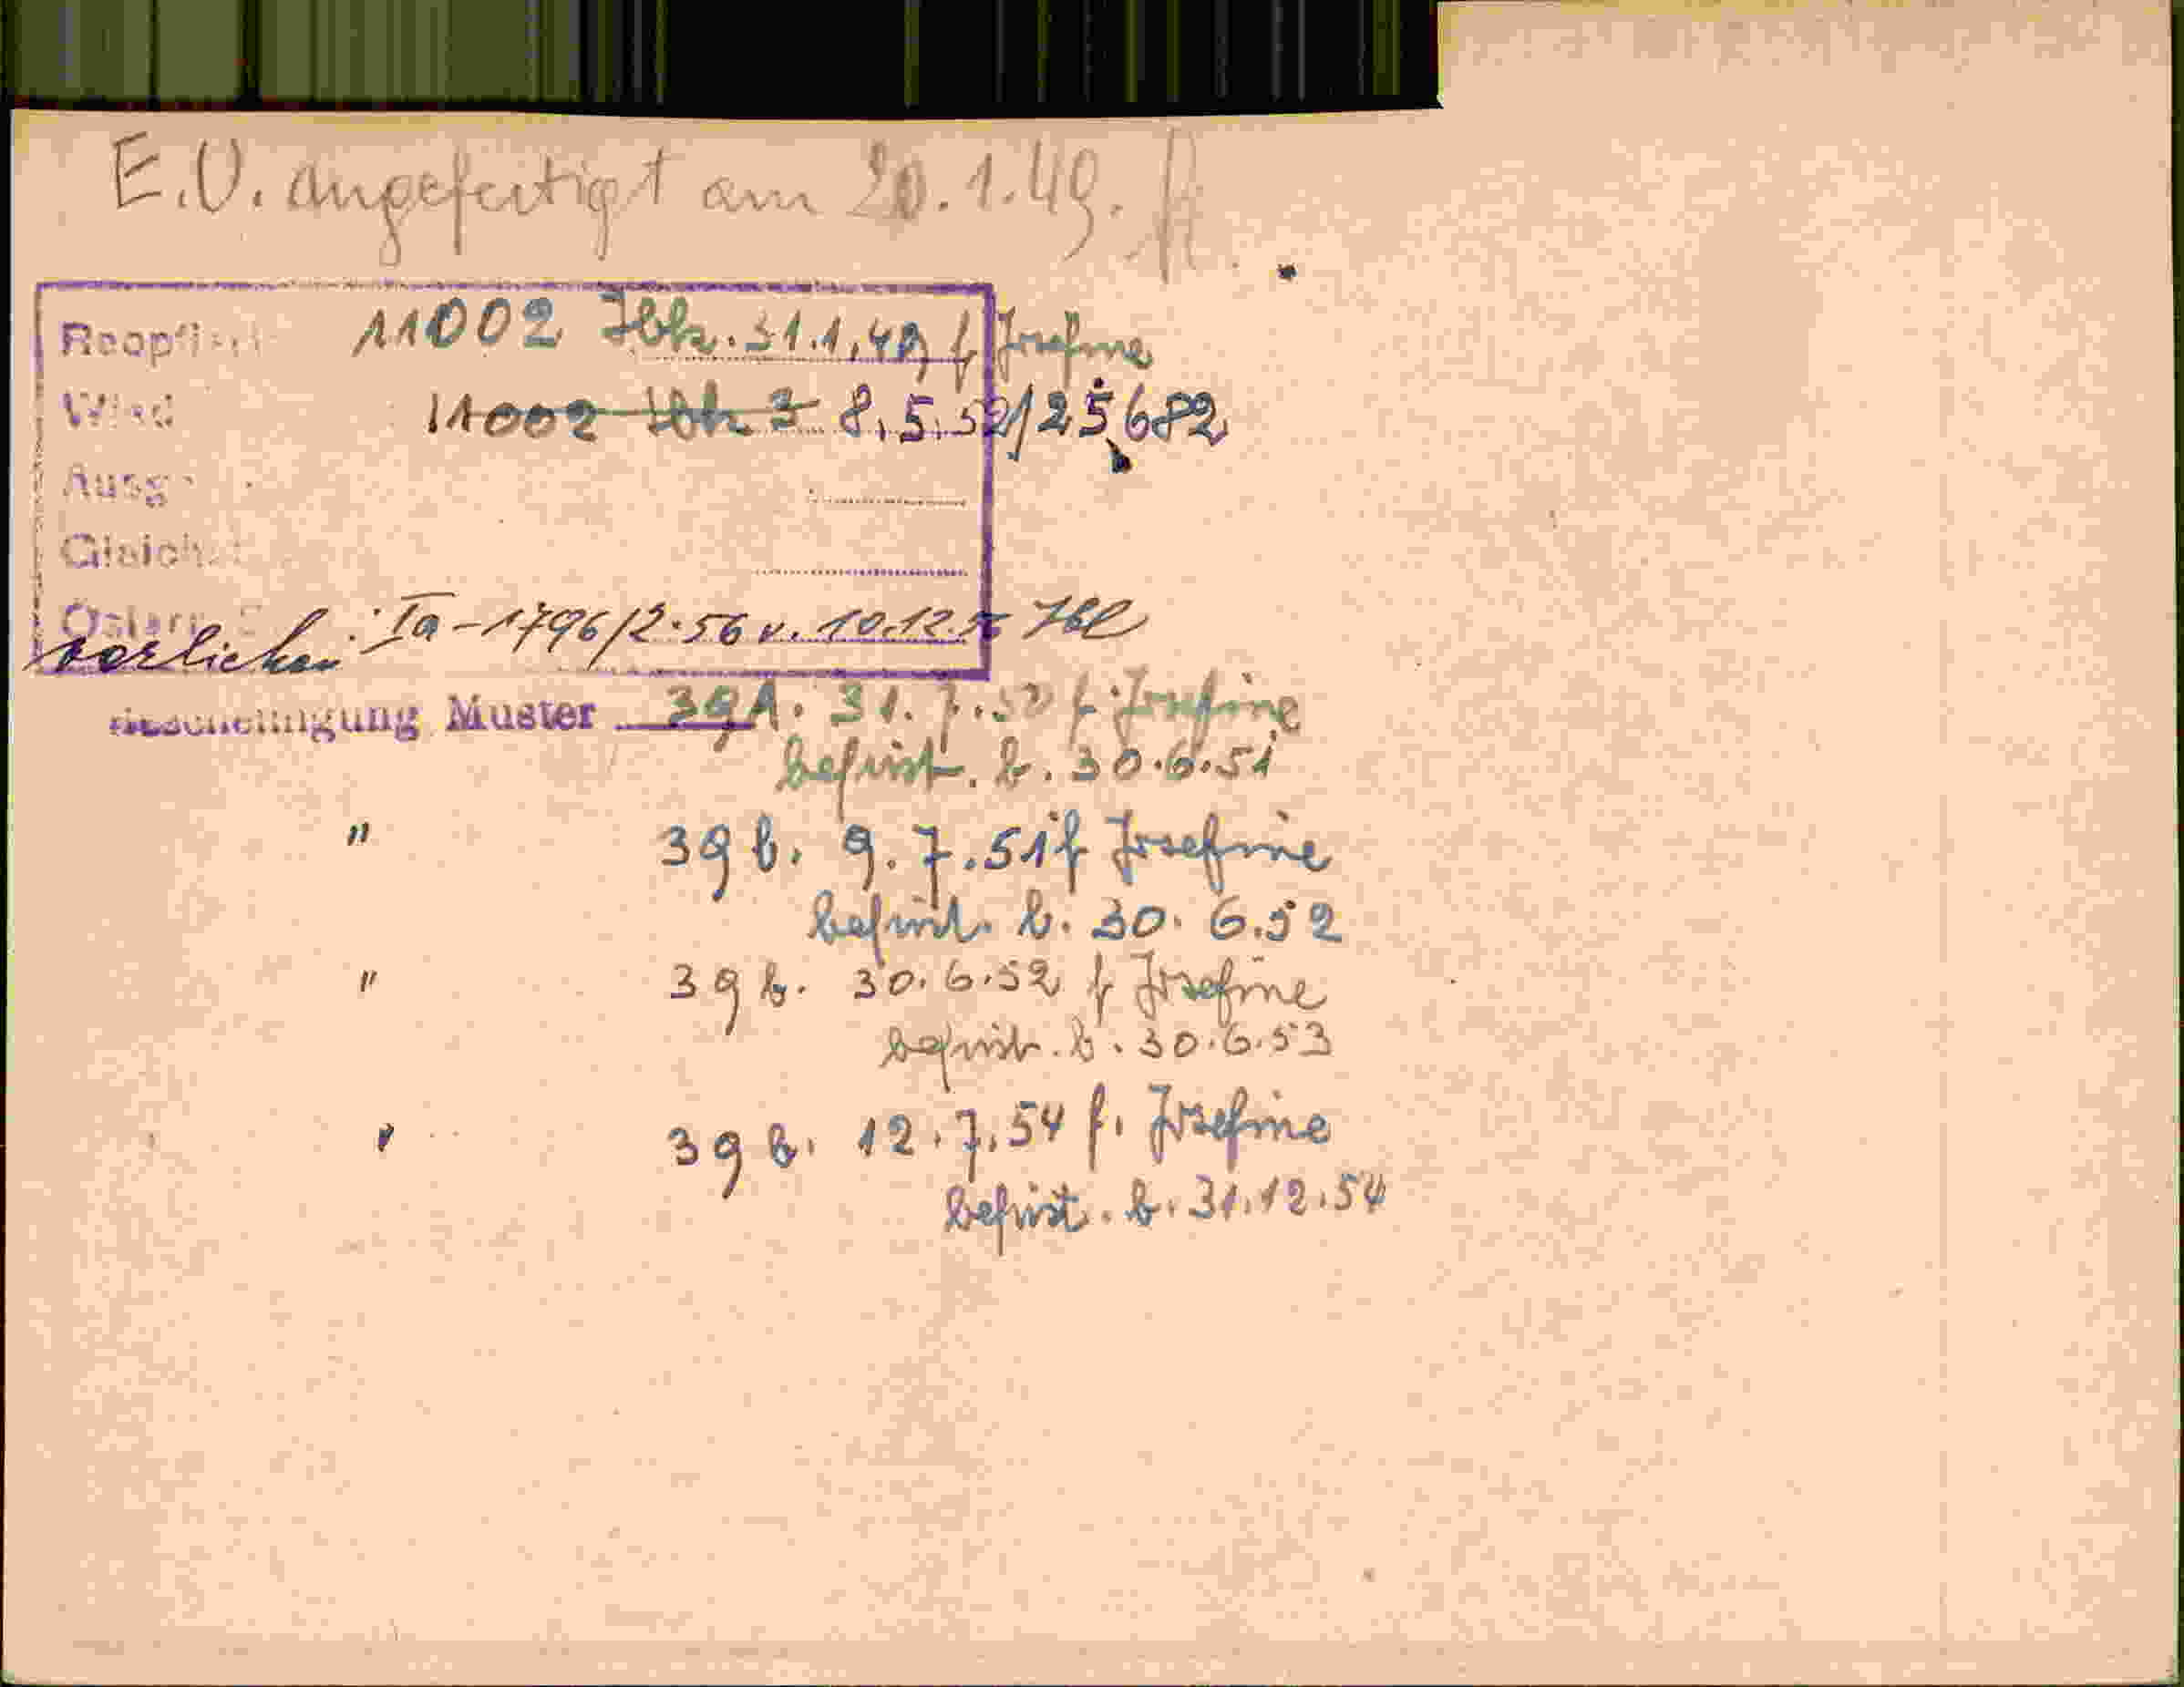 E.V. angefertigt am 20.1.49.
11002 Ibk. 31.1.49 f Josefine
11002 Ibk 3 8.5.52/25682
Ausg
Gleich
verliehen: Ia-1796/2.56 v. 10.12.56 Ibk
Bescheinigung Muster 39A. 31.7.50 f. Josefine
befrist. b. 30.6.51
" 39 b. 9.7.51 f Josefine
befrist. b. 30.6.52
" 39 b. 30.6.52 f Josefine
befrist. b. 30.6.53
" 39 b. 12.7.54 f. Josefine
befrist. b. 31.12.54